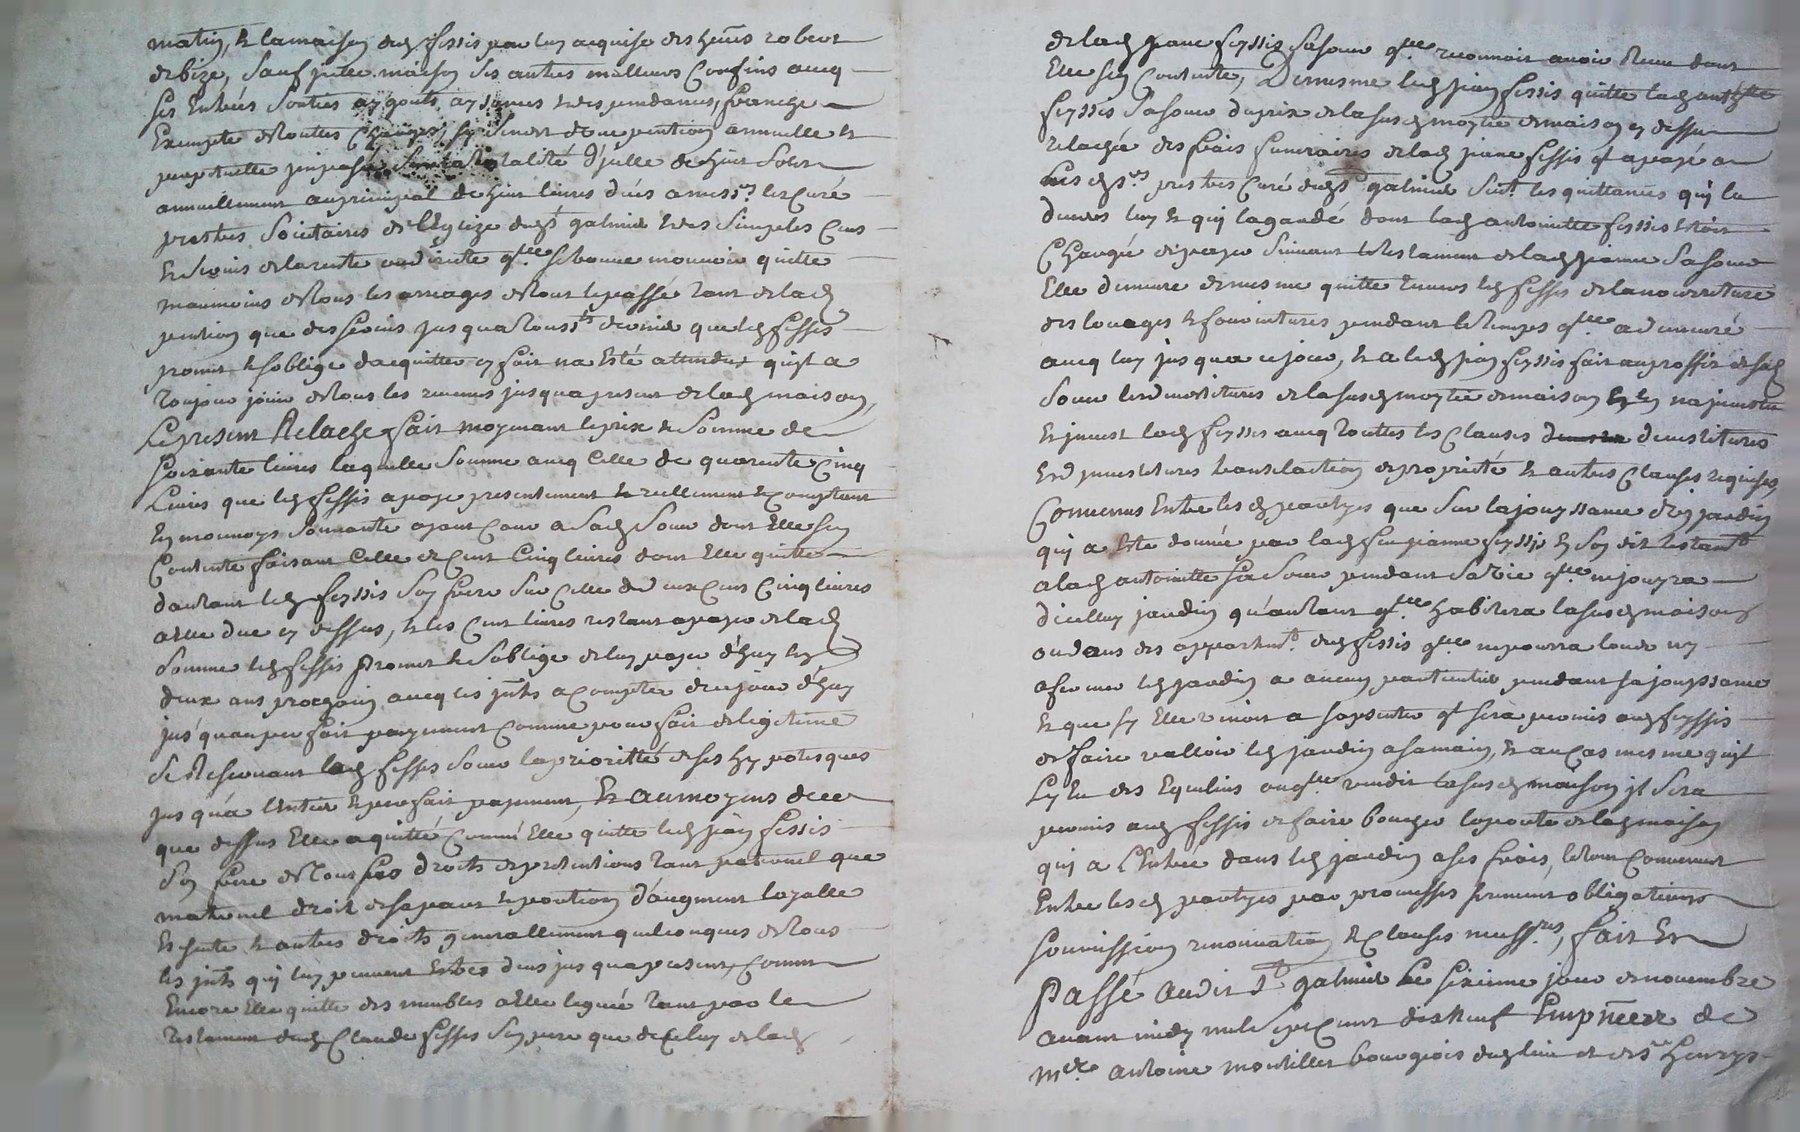 matin, & la maison dud fessis par luy acquise des heurs robert
debize, sauf juste maison ses autres meilleurs Confins avecq
ses Entrées sorties aygouts aysances & despendances, franche
Exempte de touttes Charges, sy Ce nest dune pention annuelle &
perpetuelle jmposée sur la totalité d'jcelle de huit sols
annuellement au principal de huit livres dües a mess.rs les curé
prestres societaires de l'Eglize de st galmier & des simples Cens
& servis de la rente qlle se bonne mouvoir quitte
neanmoins de tous les arrerages de tout le passé tant de lad
pention que des servis jusqua touss.ts dernier que led fessis
promet & soblige dacquitter sy fait na Esté attendu quil a
toujour jouy de tous les revenus jusqua present de lad maison,
Le present Relache fait moyenant le prix & somme de
soixante livres laquelle somme avecq Celle de quarente Cinq
Livres que led fessis a payé presentement & reellement & comptant
En monnoye sonnante ayant Cour a sad soeur dont Elle sen
Contente faisant Celle de Cent Cinq livres dont Elle quitte
dautant led feyssis son frere sur Celle de deux Cent Cinq livres
a Elle due cy dessus, & les Cent livres restant a payer de lad
somme led fessis promet & soblige de luy payer d'huy En
deux ans prochain avecq les jnts a compter de ce jour d'huy
jus'quau parfait payement comme pour fait de legitime
se Reservant lad fessis soeur la priorité de ses hypoteques
jusqu'a l'Entier & parfait payement, & au moyens de ce
que dessus Elle a quitté Comme Elle quitte led jean fessis
son frere de tous ses droits & pretentions tant paternel que
maternel droit de sa part & portion d'augment
& autres droits generallement quelconques de tous
les jnts qui luy peuvent Estres deus jusqua present, Comme
Encore Elle quitte des meubles a Elle legués tant par le
testament dud Claude fessis son pere que de Celuy de lad
de lad jeane feyssis sa soeur qlle reconnoit avoir Receu dont
Elle sen Contente, De mesme led jean fessis quitte lad anth.tte
feyssis sa soeur du prix de la susd moytié de maison cy dessus
relachée des frais funeraires de lad jeane fessis ql a payé a
prestres Curé dud st galmier suivt les quittances quil a
devers luy & quil a gardé dont lad antoinette fessis Estoit
Chargée de payer suivant le testament de lad jeanne sa soeur
Elle demeure de mesme quitte Envers led fessis de la nourriture
des louages & fournitures pendant le temps qlle a demeuré
avecq luy jusqua ce jour, & a led jean feyssis fait au proffit de sad
soeur les demonitures de la susd moytié de maison
& jnvest lad feyssis avecq touttes les Clauses devestitures
translaction de proprieté & autres Clauses requises,
Convenus Entre lesd partyes que sur la jouyssance d'un jardin
qui a Esté donnée par lad feu jeanne feyssis En son dit testam.t
a lad antoinette sa soeur pendant sa vie qlle ne jouyra
d'jcelluy jardin qu'autant qlle habitera la susd maison
ou dans des appartem.ts dud fessis qlle ne pourra louer ny
afermer led jardin a aucun particulier pendant sa jouyssance
& que sy Elle venoit a sapsenter ql sera permis aud feyssis
de faire valloir led jardin a sa main, & au Cas mesme quil
ou qlle vendit la susd maison jl sera
permis aud fessis de faire boucher la porte de lad maison
qui a l'Entrée dans led jardin a ses frais, le tout Convenut
Entre lesd partyes par promesses serment obligations
soumission renonciation & Clauses necess.res, fait Et
Passé audit st galmier Le sixieme jour de novembre
avant midy mil sept Cent dix neuf En presence de
m.re antoine moutillet bourgeois dud lieu et de sr Henrys